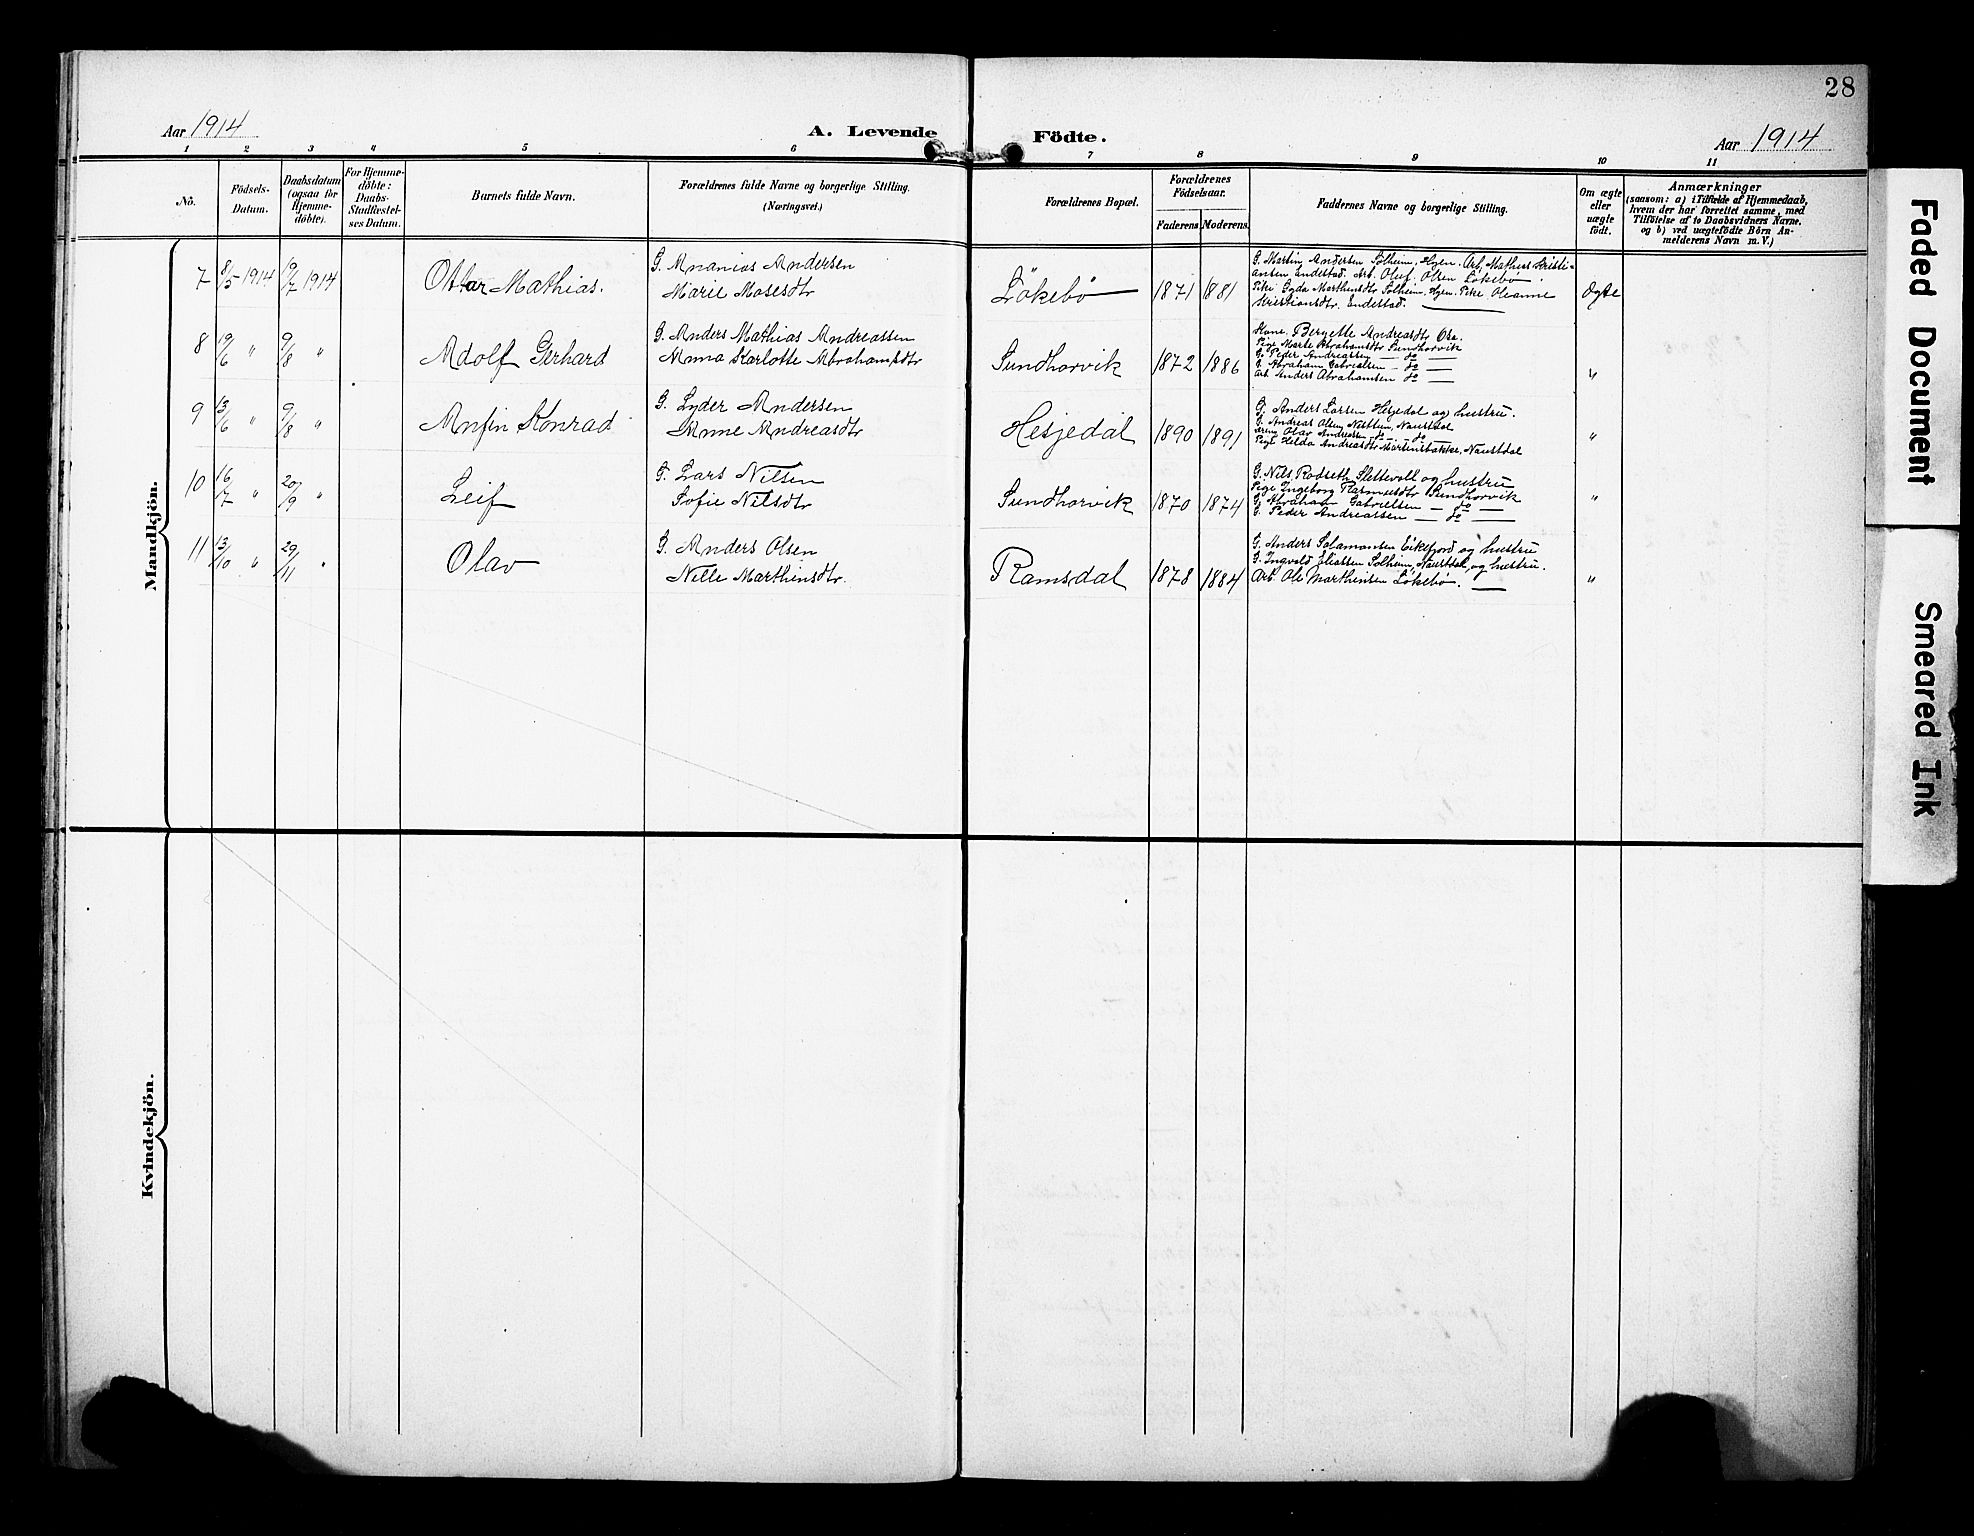 28
Aar 1914
A. Levende Födte.
Aar 1914
1 2 3 4 5 6 7 8 9 10 11
No.
Födsels-Datum.
Daabsdatum (ogsaa for Hjemmedöbte).
For Hjemmedöbte: Daabs-Stadfæstelses Datum.
Barnets fulde Navn.
Forældrenes fulde Navne og borgerlige Stilling.
(Næringsvei.)
Forældrenes Bopæl.
Forældrenes Födselsaar.
Faderens Moderens
Faddernes Navne og borgerlige Stilling.
Om ægte eller uægte födt.
Anmærkninger
(saasom: a) i Tilfælde af Hjemmedaab,
hvem der har forrettet samme, med
Tilföielse af to Daabsvidners Navne.
og b) ved uægtefödte Börn An-
melderens Navn m. V.)
Mandkjön.
7 8/5 1914 19/7 1914 Ottar Mathias.
G. Ananias Andersen
Marie Mosesdtr
Lökebö 1871 1881
G. Martin Andersen Solheim, Hyen. Arb. Mathias Kristi-
ansen Endestad. Arb. Oluf Olsen Lökebö.
Pike Gyda Marthinsdtr Solheim, Hyen. Pike Oleanne
Kristiansdtr. Endestad.
Ægte
8 19/6 " 9/8 " Adolf Gerhard
G. Anders Mathias Andreassen
Anna Karlotte Abrahamsdtr
Sundhorvik 1872 1886
Kone Bergette Andreasdtr Ose.
Pige Marte Abrahamsdtr Sundhorvik
G. Peder Andreassen — do —
G. Abraham Gabrielsen — do —
Arb. Anders Abrahamsen do —
"
9 13/6 " 9/8 " Anfin Konrad
G. Lyder Andersen
Anne Andreasdtr
Hesjedal 1890 1891
G. Anders Larsen Hesjedal og hustru.
G. Andreas Olsen Naustdal
Olav Andreassen do — do —
Hilda Andreasdtr Martinsbakke, Naustdal
"
10 16/7 " 20/9 " Leif
G. Lars Nilsen
Sofie Nilsdtr
Sundhorvik 1870 1874
G. Nils Rodseth, Slettevoll og hustru
Pige Ingeborg Rasmusdtr Sundhorvik
G. Abraham Gabrielsen — do —
G. Peder Andreassen — do —
"
11 13/10 " 29/11 " Olav
G. Anders Olsen
Nelle Marthinsdtr.
Ramsdal 1878 1884
G. Anders Salamonsen Eikefjord og hustru
G. Ingvald Eliassen Solheim, Naustdal, og hustru.
Arb. Ole Marthinsen Lökebö.
"
Kvindekjön.
Faded Document
Smeared Ink